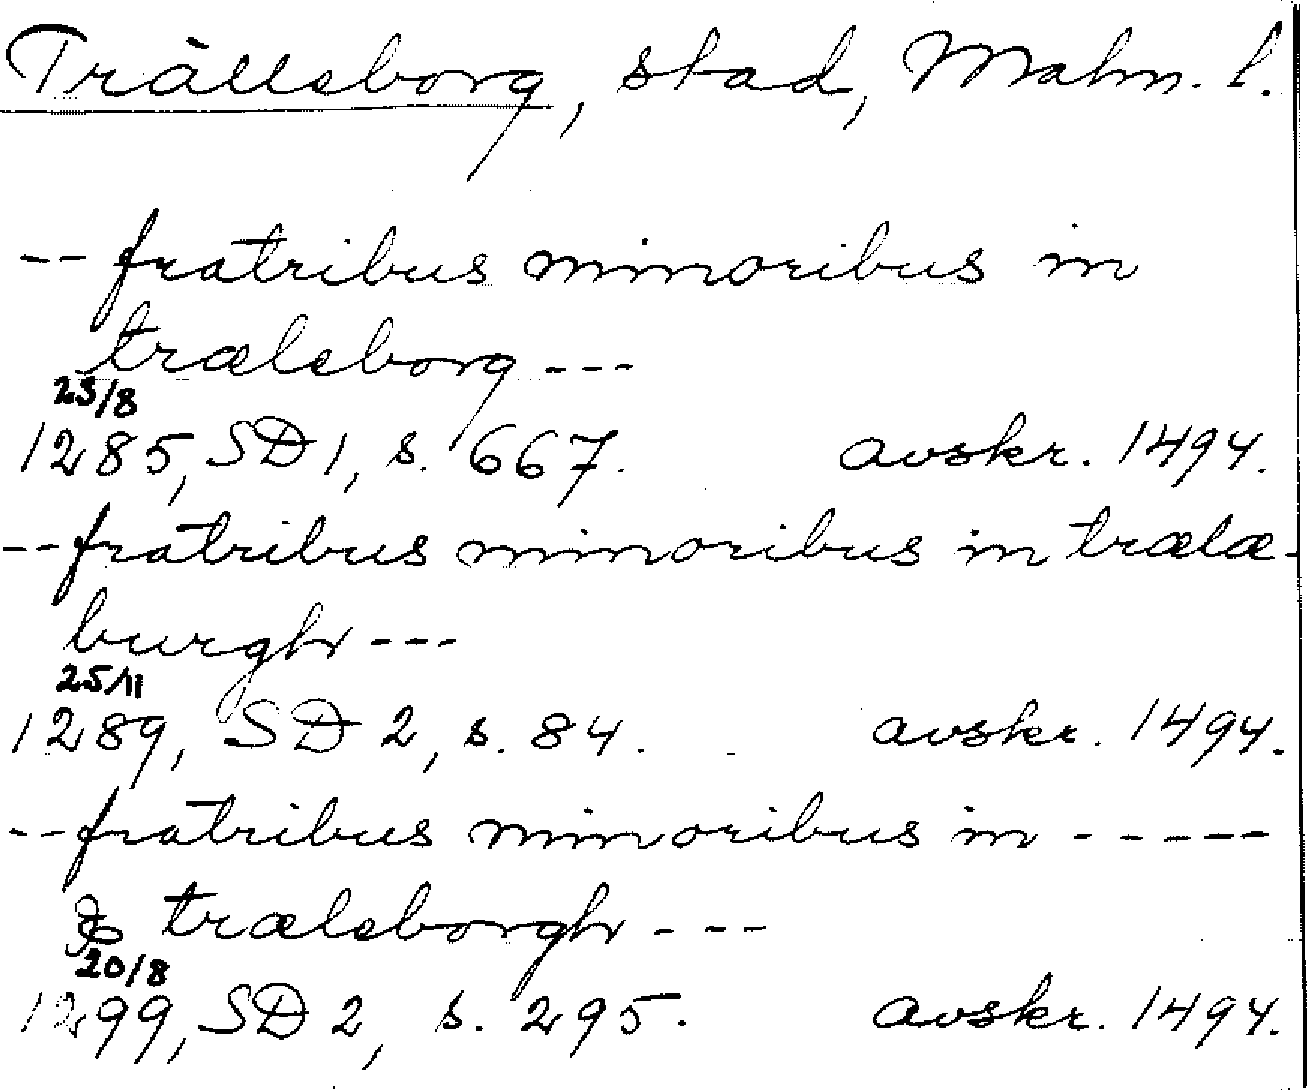 Trälleborg, stad, Malm. l.
-- fratribus minoribus in
træleborg ---
23/8
1285, SD 1, s. 667. avskr. 1494.
-- fratribus minoribus in trælæ-
burgh ---
25/11
1289, SD 2, s. 84. avskr. 1494.
-- fratribus minoribus in -----
& træleborgh ---
20/8
1299, SD 2, s. 295. avskr. 1494.